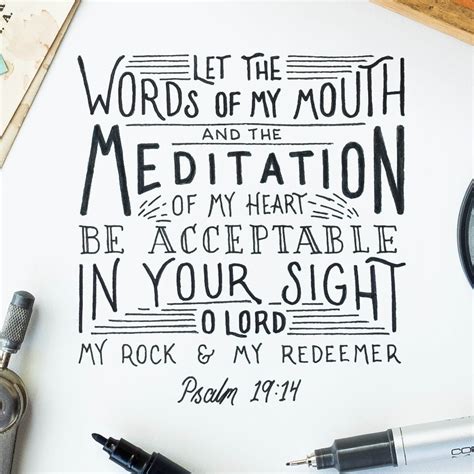 LET THE
WORDS OF MY MOUTH
AND THE
MEDITATION
OF MY HEART
BE ACCEPTABLE
IN YOUR SIGHT
O LORD
MY ROCK & MY REDEEMER
Psalm 19:14